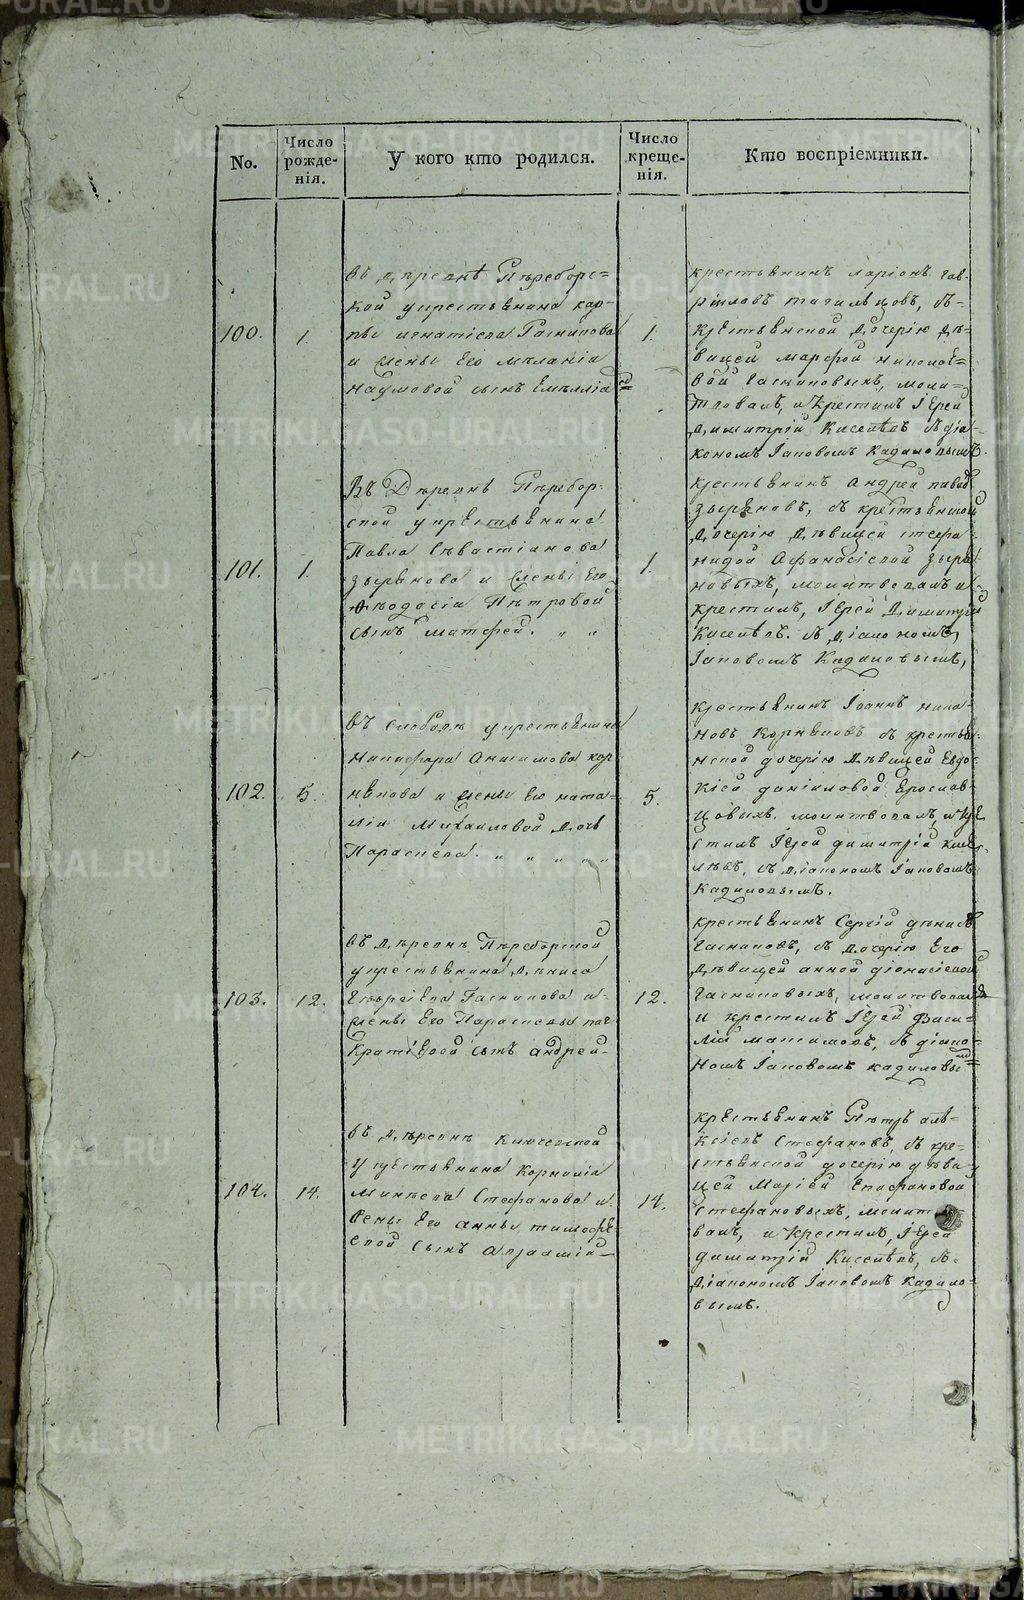 No.
Число рожде-нія.
У кого кто родился.
Число креще-нія.
Кто воспріемники.
100.
1.
въ деревнѣ Пѣреборс=
кой у крестьянина кар=
пы игнатіева Гаскинова
и жены Его мѣланіи
наумовой сынъ Емѣлліа
1.
крестьянинъ ларіонъ гав=
риловъ тагильцовъ, съ
крестьянской дочерію дѣ=
вицей марфой николае=
вой Гаскиновыхъ, моли=
твовалъ, и крестилъ Іерей
димитрій Киселѣвъ съ діа=
кономъ Іаковомъ Кадиловымъ.
101.
1.
Въ Дѣревнѣ Пѣребор-
ской у крестьянина
Павла Сѣвастіанова
зырянова и жены Его
Ѳѣодосіи Пѣтровой
сынъ матфей.
1.
крестьянинъ андрей
зыряновъ, съ крестьянской
дочерію дѣвицей стефа=
нидой Афанасіевой зыря
новыхъ, молитвовалъ и
крестилъ, Іерей Димитрій
Киселѣвъ. съ діакономъ,
Іаковомъ Кадиловымъ,
102.
5.
въ слободѣ у крестьянина
Никифора Анисимова кор
нѣлова и жены Его ната=
ліи Михаиловой дочь
Параскева.
5.
крестьянинъ Іоаннъ
новъ съ крестья=
нской дочерію дѣвицей Евдо=
кіей даніиловой Ерослав=
цовыхъ. молитвовалъ, и кре
стилъ Іерей димитрій кисе=
лѣвъ, съ діакономъ Іаковомъ
Кадиловымъ.
103.
12.
въ дѣревнѣ Пѣреборской
у крестьянина дѣниса
Гаскинова и
жены Его Параскевы пан
кратіевой сынъ андрей
12.
крестьянинъ Сергій
Гаскиновъ, съ дочерію Его
дѣвицей анной діонисіевой
Гаскиновыхъ, молитвовалъ
и крестилъ Іерей Васи=
лій максимовъ, съ діако=
номъ Іаковомъ кадиловы
мъ
104.
14.
въ дѣревнѣ
у крестьянина Корнилія
Стефанова и
жены Его анны тимофѣ
евой сынъ
14.
крѣстьянинъ Пѣтръ алѣ=
ксіевъ Стефановъ, съ кре=
стьянской дочерію дѣви=
цей Маріей Епифановой
Стефановыхъ, молит
валъ, и крестилъ, Іерей
димитрій Киселѣвъ, съ
діакономъ Іаковомъ Кадило=
вымъ.
METRIKI.GASO-URAL.RU